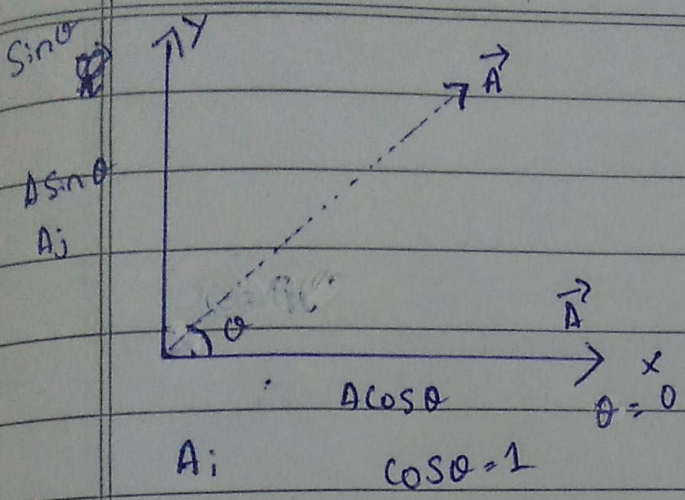 Sinθ
Y
A⃗
Asinθ
Aj
θ
A⃗
x
Acosθ
θ = 0
Ai
cosθ = 1